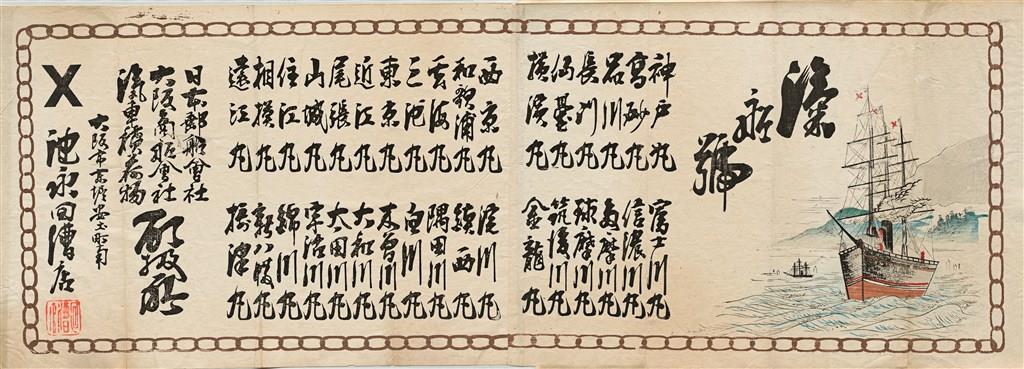 滊舩號
神戸丸
高砂丸
長州丸
仙臺丸
横濱丸
西京丸
和歌浦丸
三河丸
東京丸
近江丸
尾張丸
山城丸
住江丸
相模丸
遠江丸
富士川丸
信濃川丸
多摩川丸
球摩川丸
筑後川丸
金龍丸
淀川丸
鎮西丸
隅田川丸
白川丸
木曽川丸
大和川丸
太田川丸
宇治川丸
錦川丸
新八幡丸
摂津丸
日本郵船會社
大阪商船會社
滊車積荷物
取扱所
大阪市 安土町角
X 池永回漕店